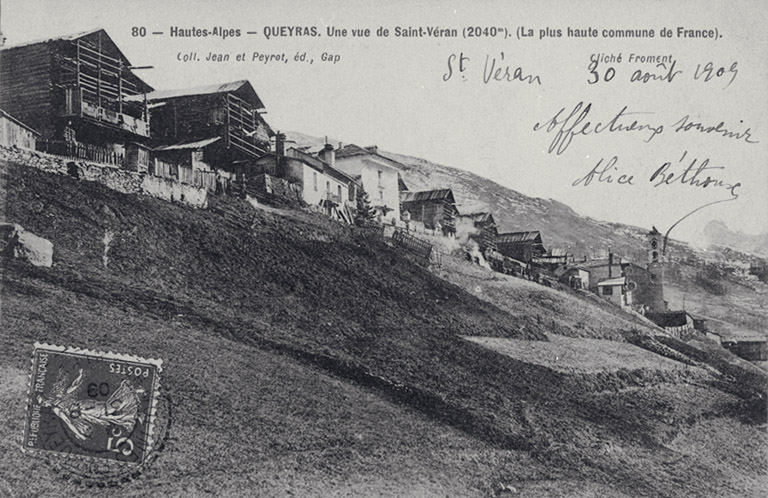 80 — Hautes-Alpes — QUEYRAS. Une vue de Saint-Véran (2040m). (La plus haute commune de France).
Coll. Jean et Peyrot, éd., Gap
Cliché Froment
St Véran 30 août 1909
Affectueux souvenir
Alice Béthoux
POSTES
REPUBLIQUE FRANÇAISE
5c
09